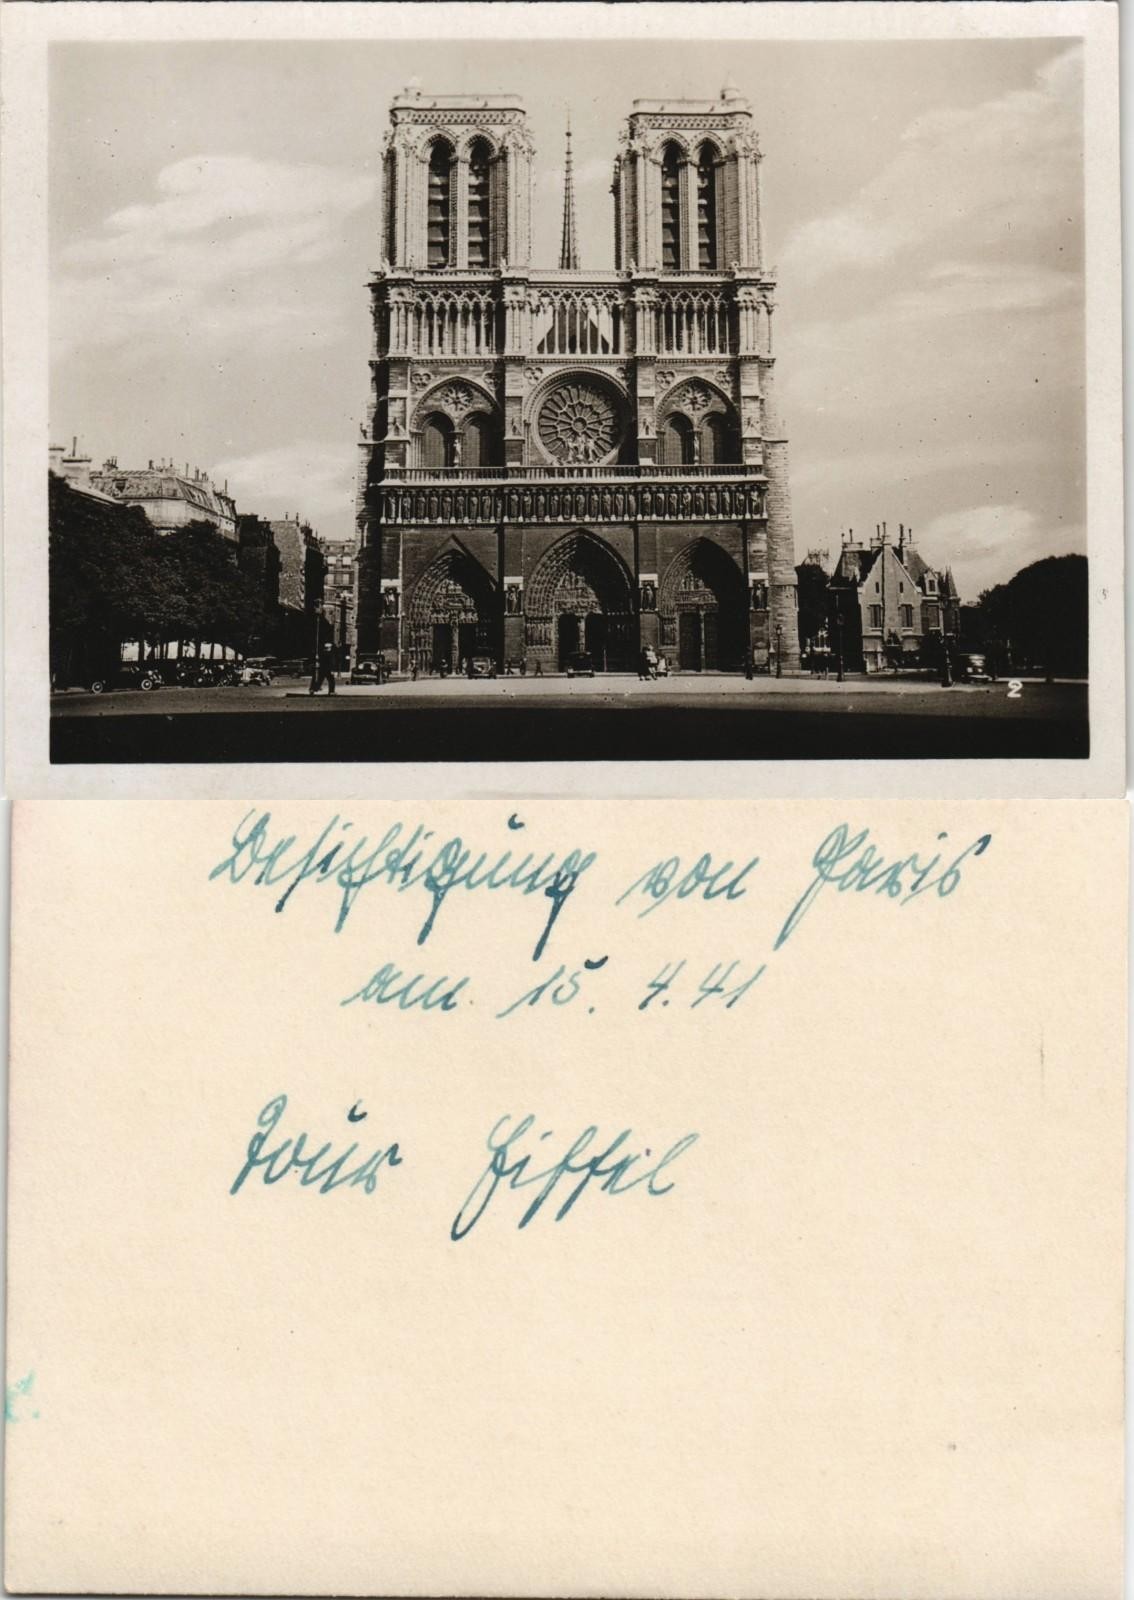 2
Besichtigung von Paris
am 15. 4. 41
Tour Eiffel